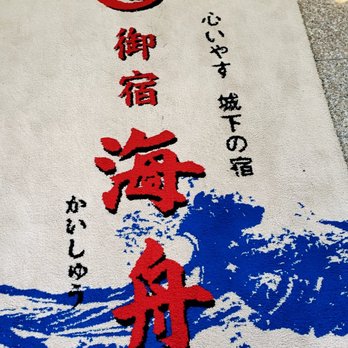 心いやす 城下の宿
御宿
海舟
かいしゅう